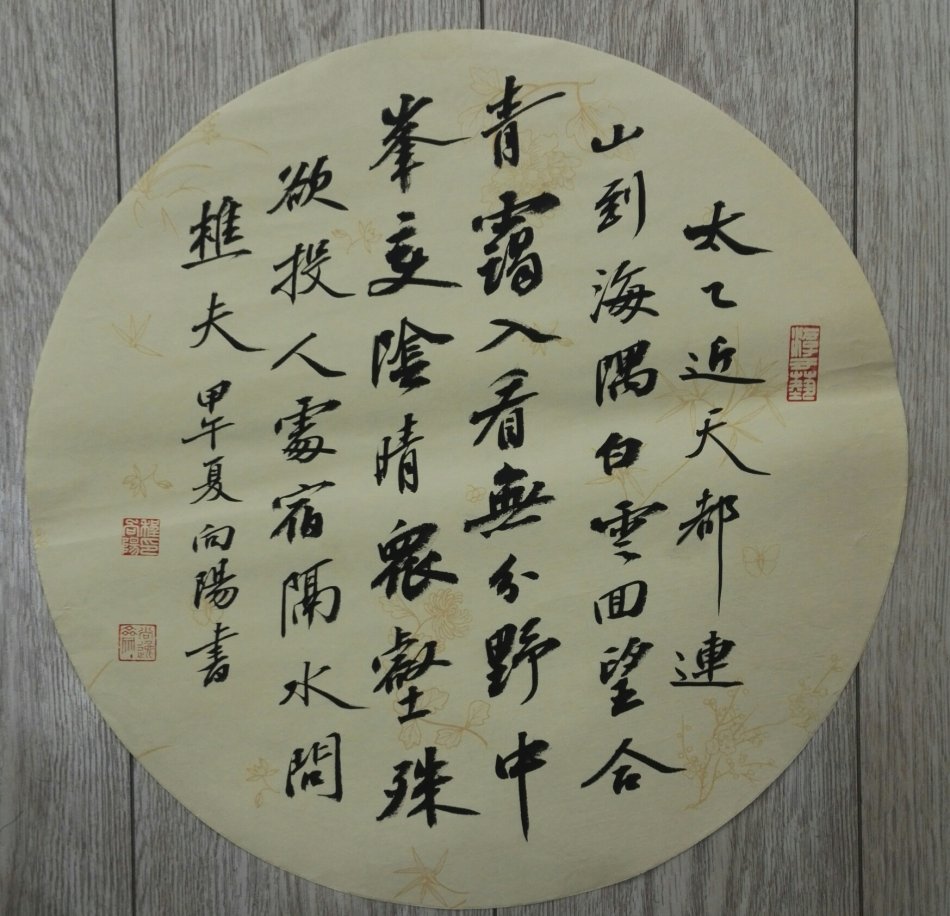 太乙近天都連
山到海隅白雲回望合
青靄入看無分野中
峯变陰晴衆壑殊
欲投人處宿隔水問
樵夫 甲午夏向陽書